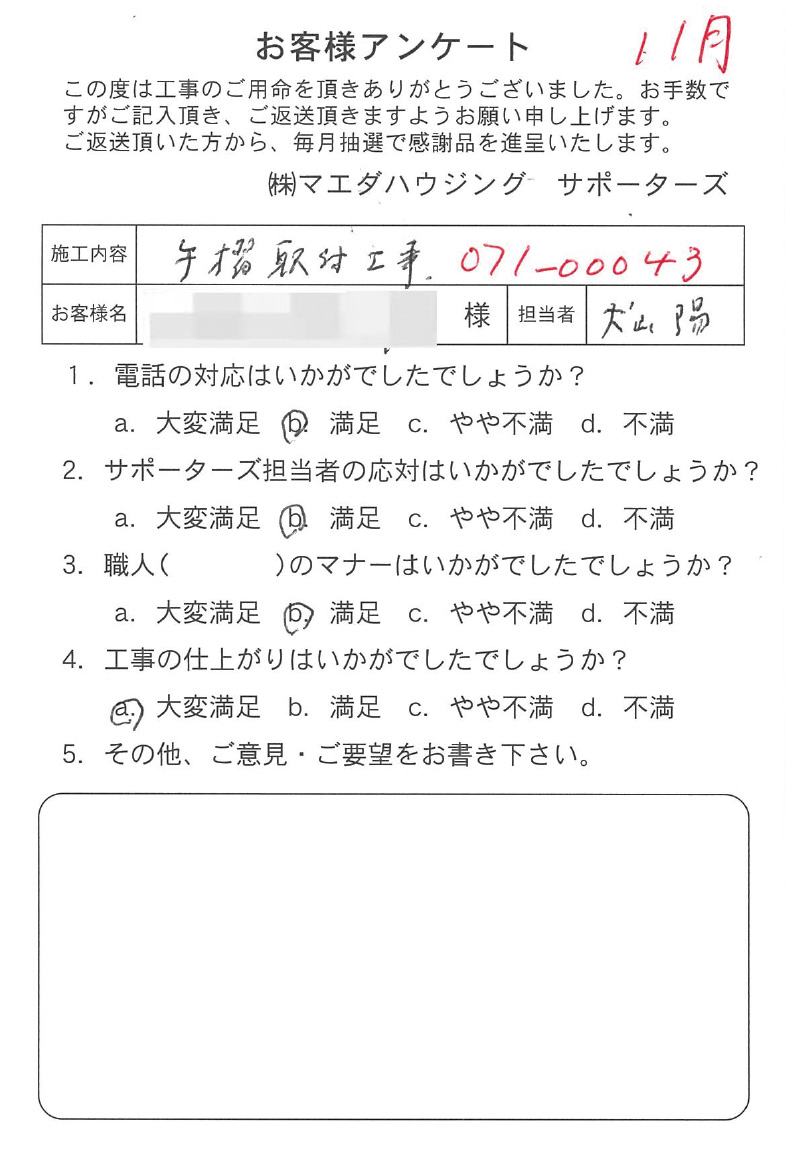 お客様アンケート
11月
この度は工事のご用命を頂きありがとうございました。お手数で
すがご記入頂き、ご返送頂きますようお願い申し上げます。
ご返送頂いた方から、毎月抽選で感謝品を進呈いたします。
㈱マエダハウジング サポーターズ
施工内容 手摺取付工事. 071-00043
お客様名 様 担当者
1. 電話の対応はいかがでしたでしょうか?
a. 大変満足 b. 満足 c. やや不満 d. 不満
2. サポーターズ担当者の応対はいかがでしたでしょうか?
a. 大変満足 b. 満足 c. やや不満 d. 不満
3. 職人( )のマナーはいかがでしたでしょうか?
a. 大変満足 b. 満足 c. やや不満 d. 不満
4. 工事の仕上がりはいかがでしたでしょうか?
a. 大変満足 b. 満足 c. やや不満 d. 不満
5. その他、ご意見・ご要望をお書き下さい。